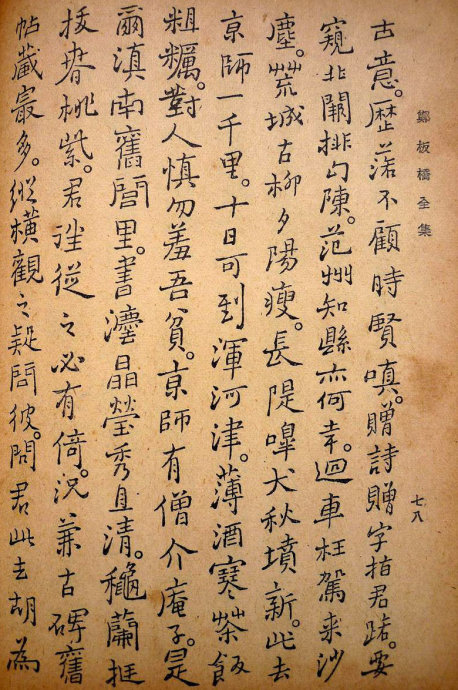 鄭板橋全集
七八
古意。歷落不顧時賢嗔。贈詩贈字指君路。要
窺北闕排勾陳。范州知縣亦何幸。迴車枉駕來沙
塵。荒城古柳夕陽瘦。長隄嘷犬秋墳新。此去
京師一千里。十日可到渾河津。薄酒寒茶飯
粗糲。對人慎勿羞吾貧。京師有僧介庵子。是
爾滇南舊閭里。書灋晶瑩秀且清。穐蘭挺
拔春桃紫。君往從之必有倚。況兼古碑舊
帖藏最多。縱橫觀之疑彼。問君此去胡為